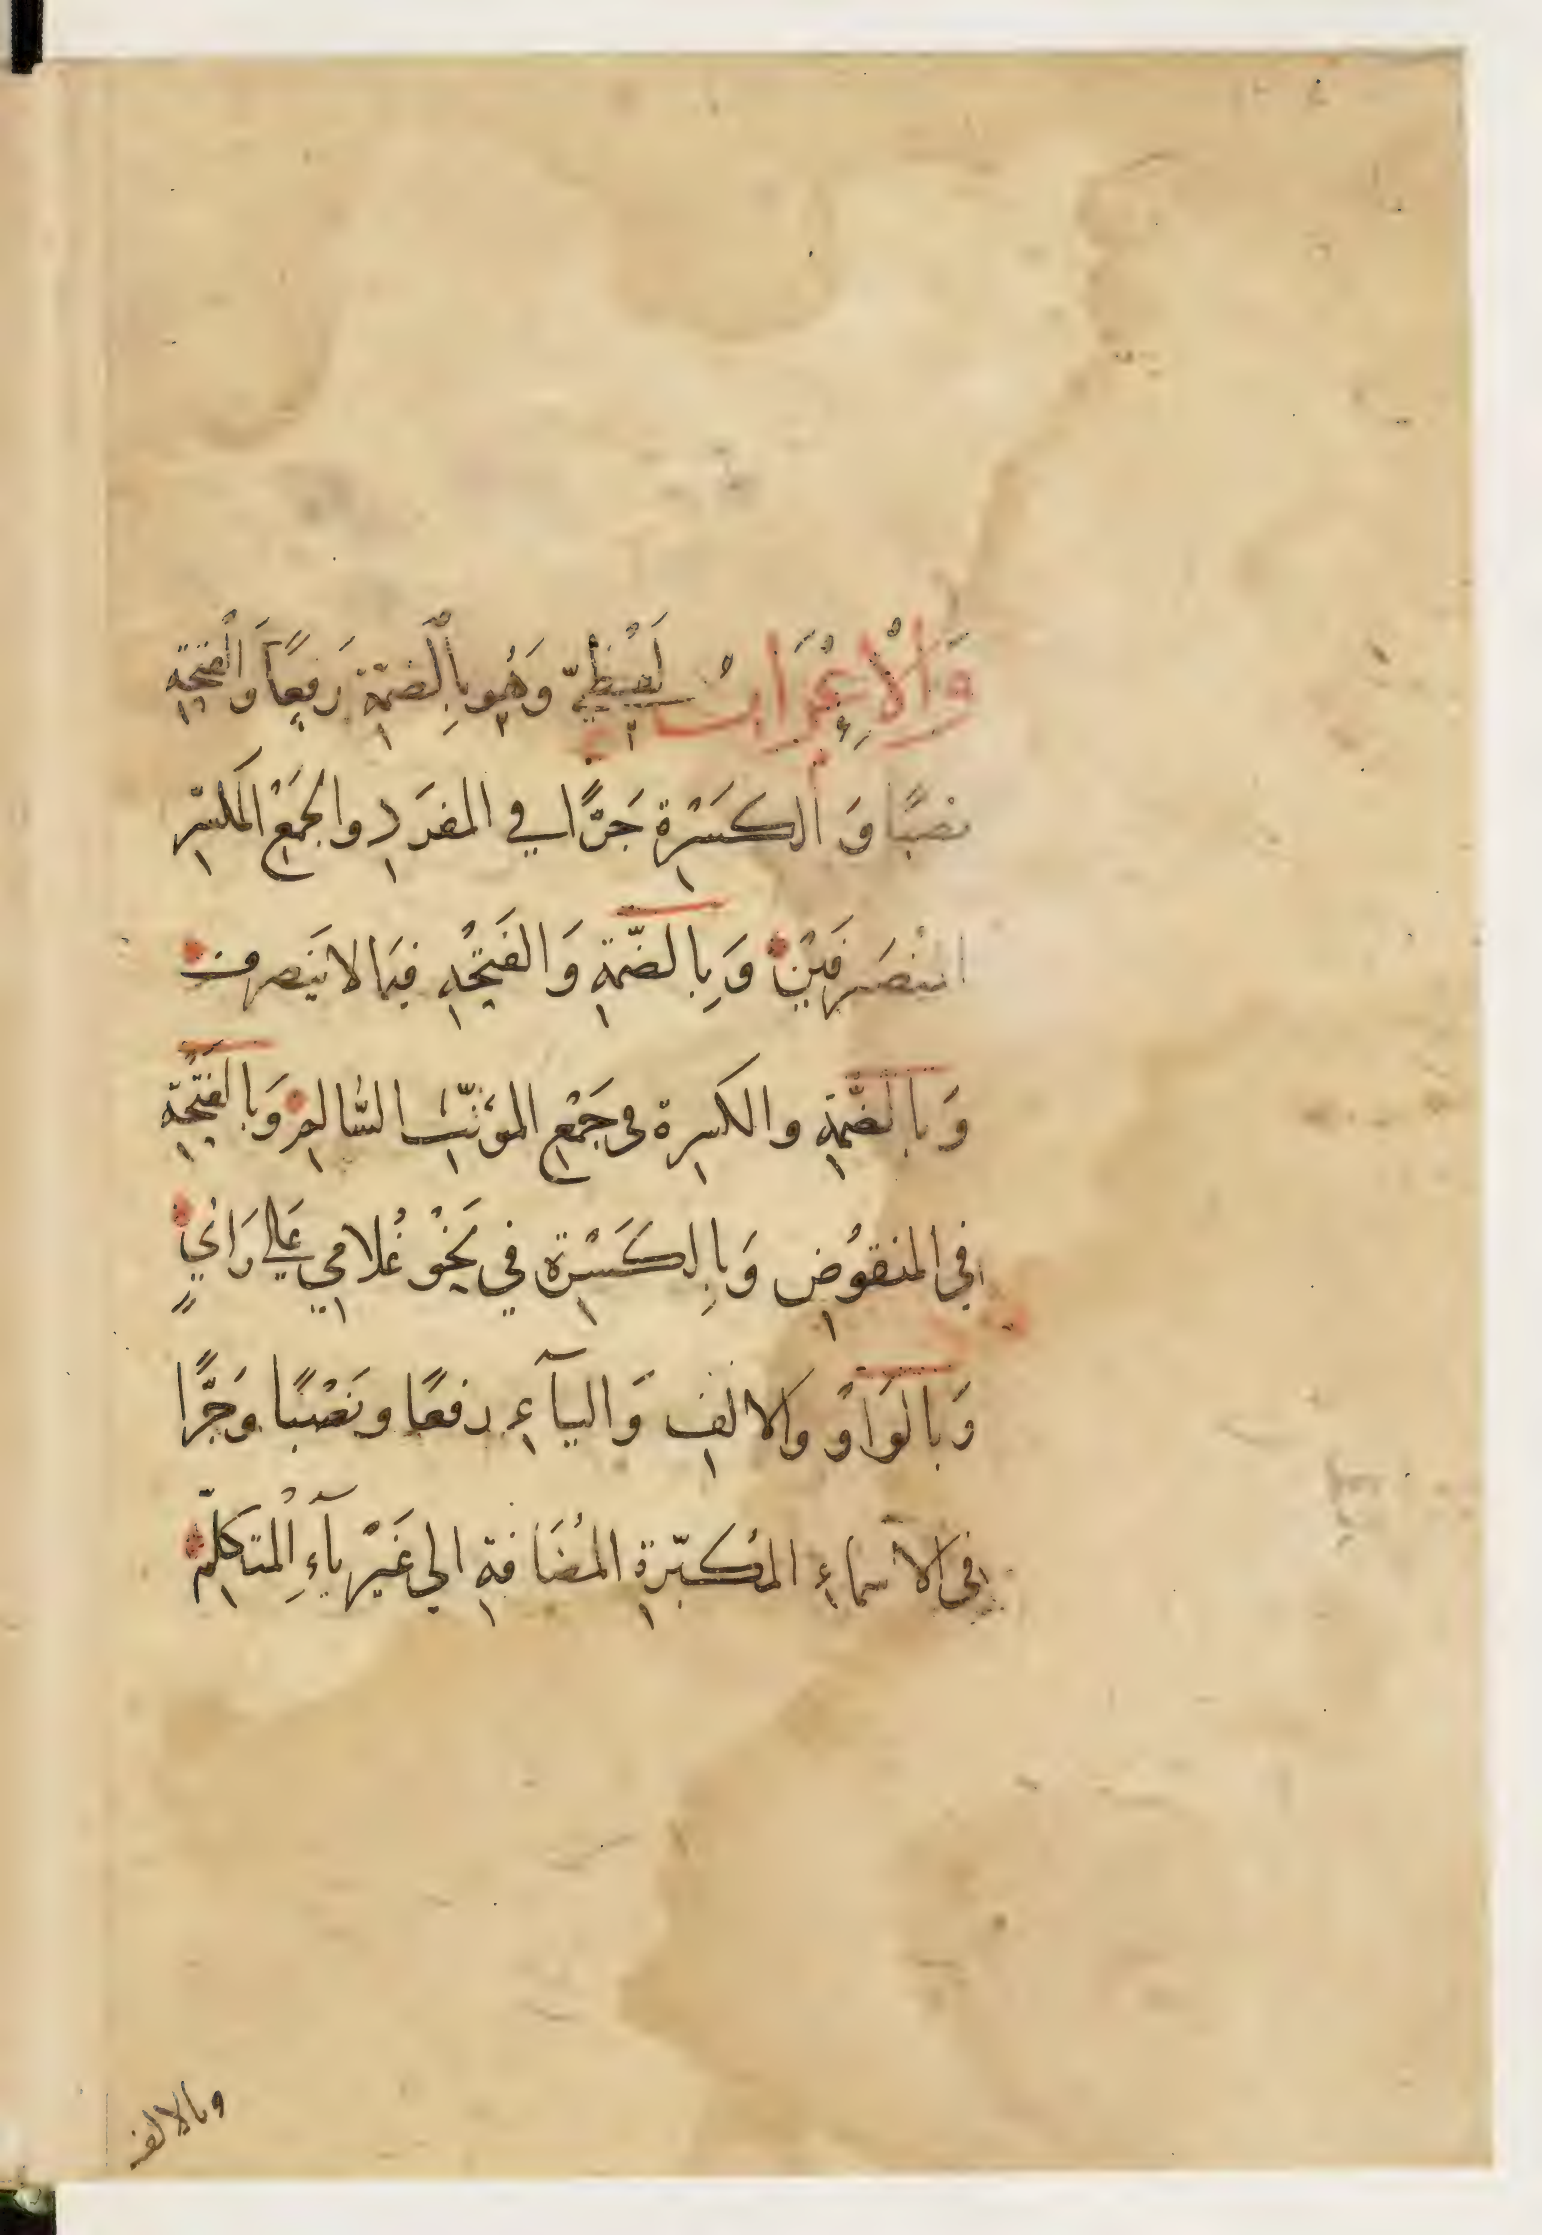 وَالْإِعْرَابُ لَفْظِيّ وَهُو بِالْضمّةِ رَفعًا وَالْفَتحَةِ
نصبًا وَ الكَسْرَةِ جَرًّا في المفرَدِ والجَمْعِ المُكسّرِ
المنْصَرفَيْنِ وَبِالضّمةِ وَالفَتْحَةِ فيمَا لا يَنصرفُ
وَبالضّمّةِ والكسرةِ في جَمْعِ المؤنّثِ السَّالمِ وَبالفَتْحَةِ
في المنقوُضِ وَبِالكَسْرَةِ في نَحْوِ غُلامِي عَلى رَأيٍ
وَبالوَاوْ وَالالفِ وَاليآءِ رفعًا ونَصْبًا وَجَرًّا
في الاسماءِ المُكبّرةِ المُضَافةِ الى غَيْر يآءِ الْمتكلّمِ
وبالالف